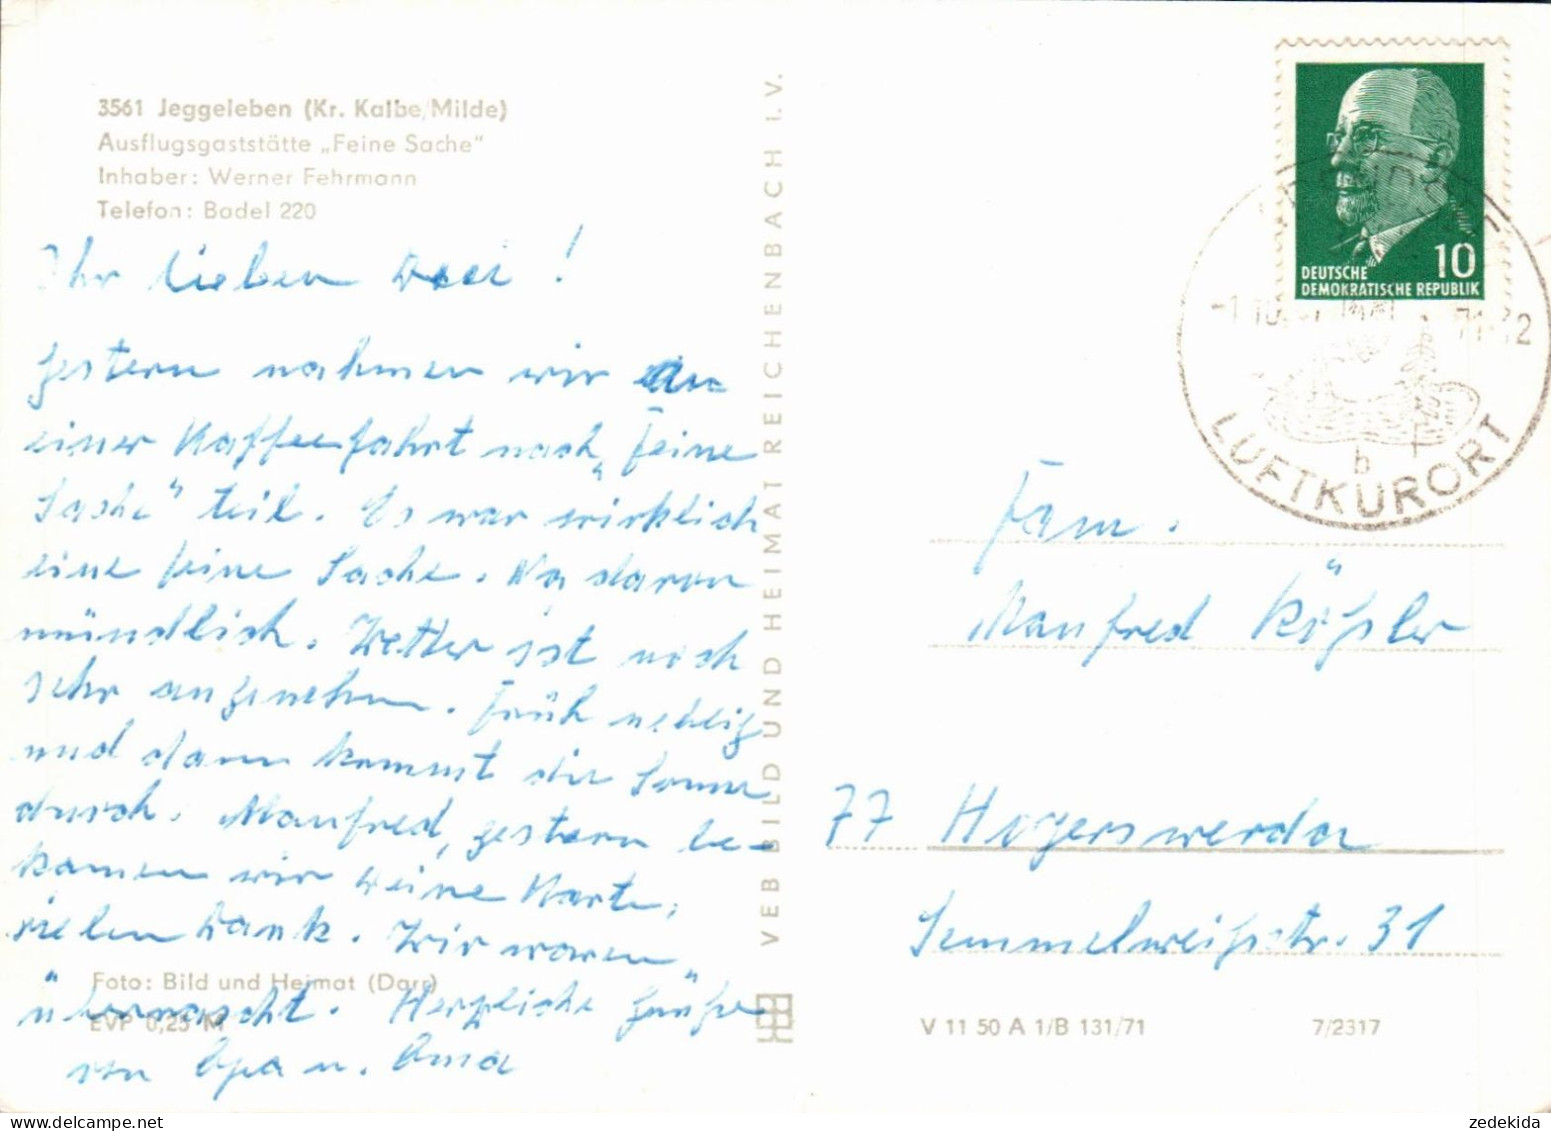 3561 Jeggeleben (Kr. Kalbe/Milde)
Ausflugsgaststätte „Feine Sache"
Inhaber: Werner Fehrmann
Telefon: Badel 220
Ihr lieben Drei!
gestern nahmen wir an
einer Kaffeefahrt nach „Feine
Sache" teil. Es war wirklich
eine feine Sache. Na davon
mündlich. Wetter ist noch
sehr angenehm. Früh neblig
und dann kommt die Sonne
durch. Manfred, gestern be-
kamen wir Deine Karte,
vielen Dank. Wir waren
überrascht. Herzliche Grüße
von Opa u. Oma
Foto: Bild und Heimat (Darr)
EVP 0,25 M
VEB BILD UND HEIMAT REICHENBACH I. V.
10
DEUTSCHE
DEMOKRATISCHE REPUBLIK
LUFTKURORT
b
Fam.
Manfred Kößler
77 Hoyerswerda
Semmelweißstr. 31
V 11 50 A 1/B 131/71
7/2317
zedekida